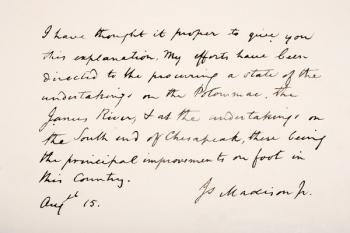 I have thought it proper to give you
this explanation. My efforts have been
directed to the procuring a state of the
undertakings on the Potowmac, the
James River, & at the undertakings on
the South end of Chesapeak, these being
the principal improvements on foot in
this Country.
Js Madison Jr.
Augst 15.